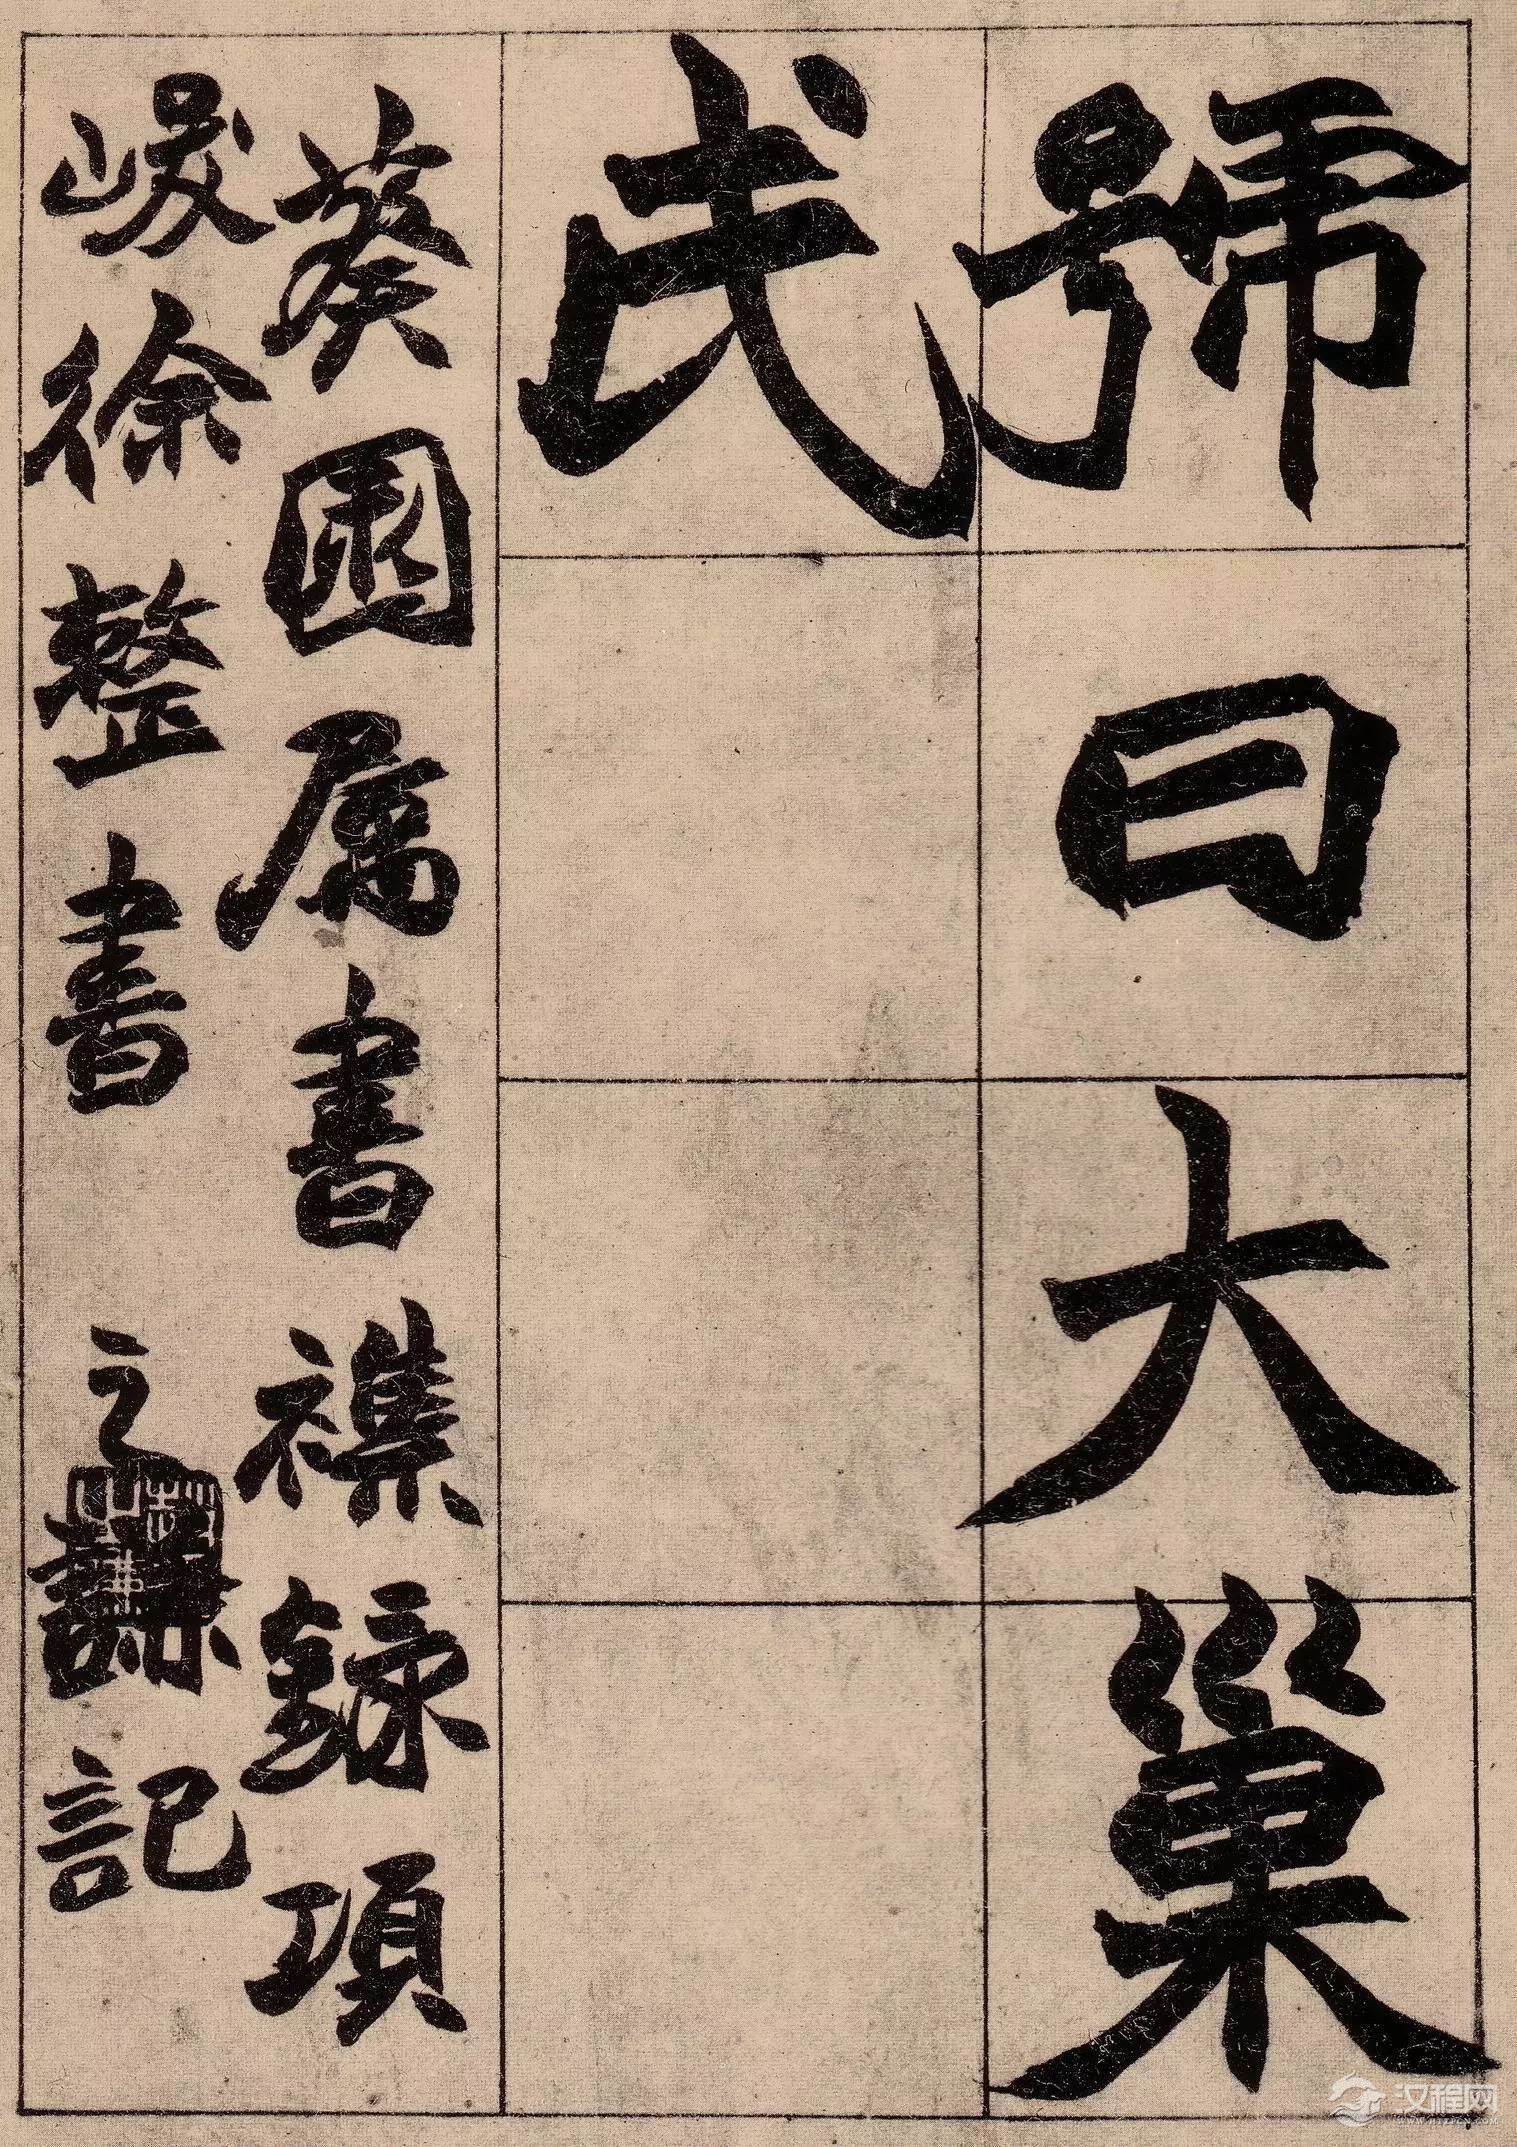 號曰大巢
氏
葵園属書襍録項
峻徐整書
之謙記
汉程网